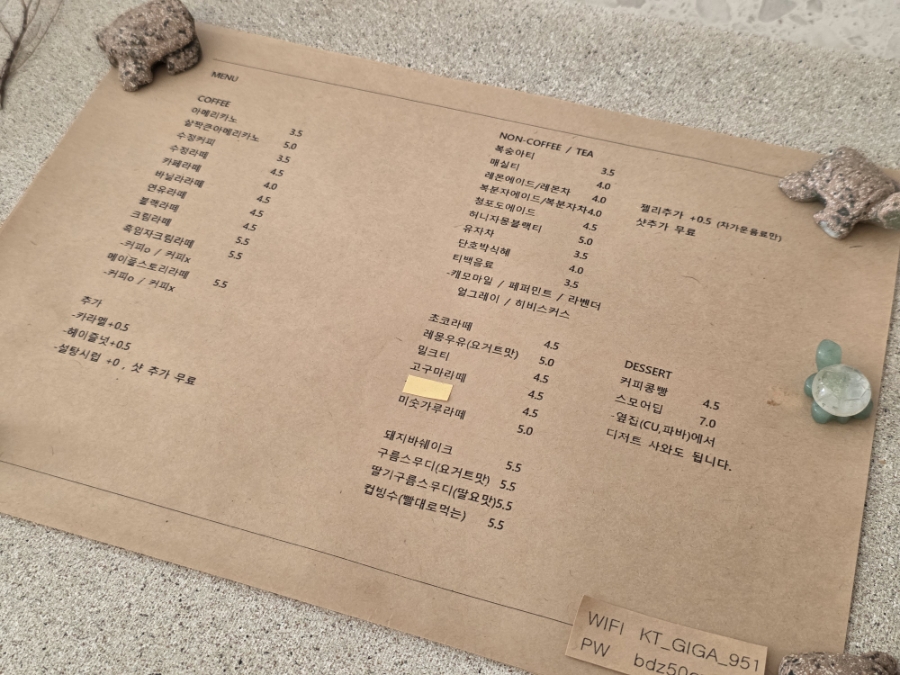 MENU
COFFEE
아메리카노 3.5
살짝큰아메리카노 5.0
수정커피 3.5
수정라떼 4.5
카페라떼 4.0
바닐라라떼 4.5
연유라떼 4.5
블랙라떼 4.5
크림라떼 5.5
흑임자크림라떼 5.5
-커피o / 커피x
메이플스토리라떼 5.5
-커피o / 커피x
추가
-카라멜+0.5
-헤이즐넛+0.5
-설탕시럽 +0 , 샷 추가 무료
NON-COFFEE / TEA
복숭아티 3.5
매실티 4.0
레몬에이드/레몬차 4.0
복분자에이드/복분자차4.0
청포도에이드 4.5
허니자몽블랙티 5.0
유자차 3.5
단호박식혜 4.0
티백음료 3.5
-캐모마일 / 페퍼민트 / 라벤더
얼그레이 / 히비스커스
초코라떼 4.5
레몽우유(요거트맛) 5.0
밀크티 4.5
고구마라떼 4.5
4.5
미숫가루라떼 5.0
돼지바쉐이크 5.5
구름스무디(요거트맛) 5.5
딸기구름스무디(딸요맛)5.5
컵빙수(빨대로먹는) 5.5
젤리추가 +0.5 (차가운음료만)
샷추가 무료
DESSERT
커피콩빵 4.5
스모어딥 7.0
-옆집(CU,파바)에서
디저트 사와도 됩니다.
WIFI KT_GIGA_951
PW